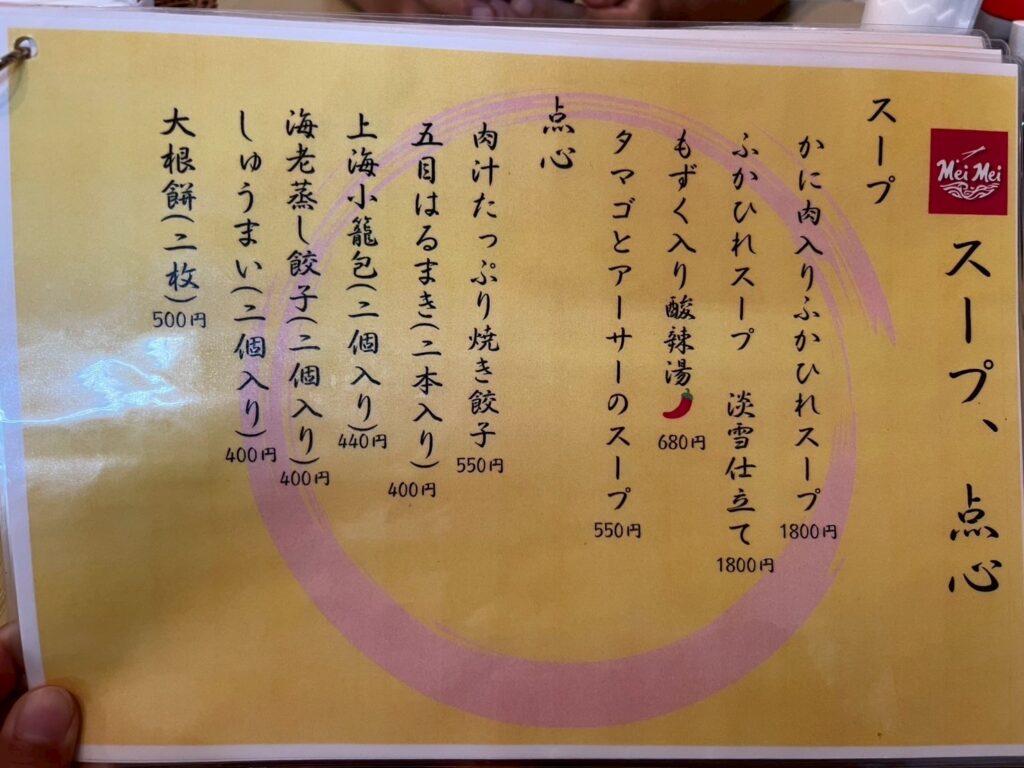 Mei Mei
スープ、点心
スープ
かに肉入りふかひれスープ
1800円
ふかひれスープ 淡雪仕立て
1800円
もずく入り酸辣湯
680円
タマゴとアーサーのスープ
550円
点心
肉汁たっぷり焼き餃子
550円
五目はるまき(二本入り)
400円
上海小籠包(二個入り)
440円
海老蒸し餃子(二個入り)
400円
しゅうまい(二個入り)
400円
大根餅(二枚)
500円